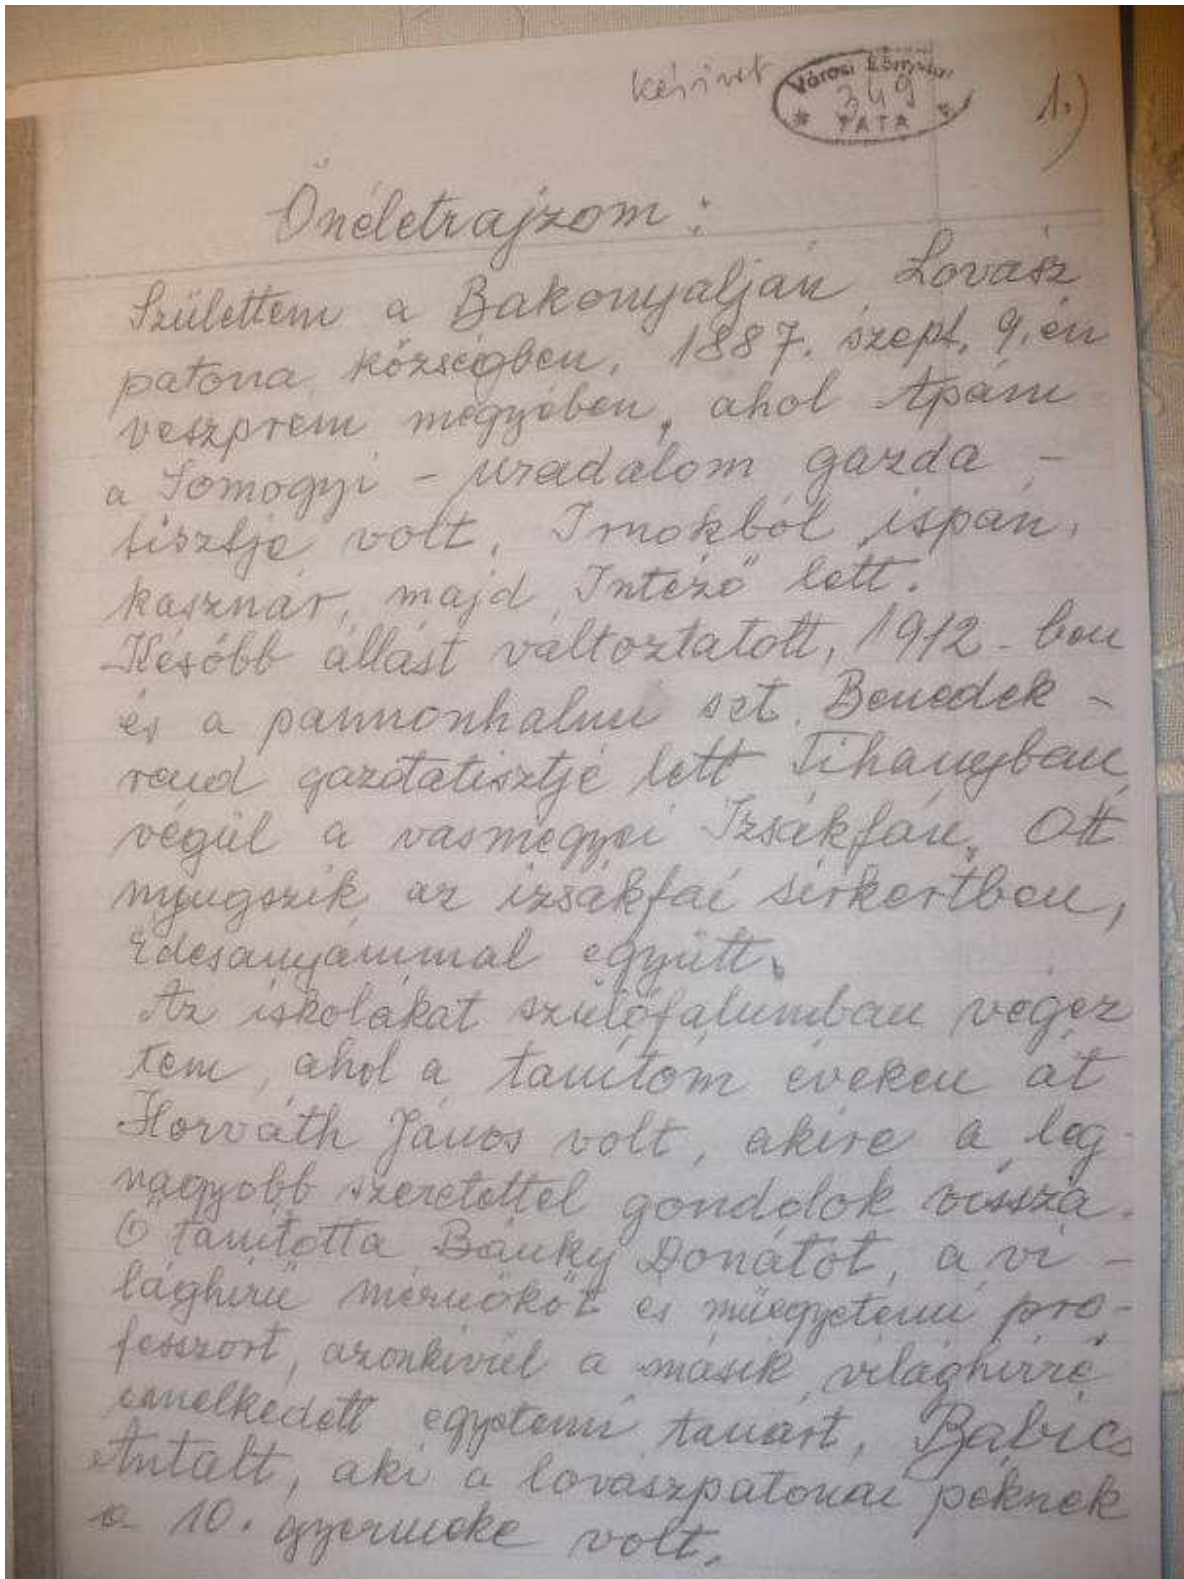 kézirat
Városi Könyvtár
349
* TATA *
1.)
Önéletrajzom :
Születtem a Bakonyalján Lovász
patona községben, 1887. szept. 9.én
veszprém megyében, ahol Apám
a Somogyi - uradalom gazda -
tisztje volt. Irnokból ispán,
kasznár, majd Intéző lett.
Később állást változtatott, 1912 - ben
és a pannonhalmi szt. Benedek -
rend gazdatisztje lett Tihanyban,
végül a vasmegyei Izsákfán. Ott
nyugszik az izsákfai sirkertben,
édesanyámmal együtt.
Az iskolákat szülőfalumban végez
tem, ahol a tanítóm éveken át
Horváth János volt, akire a leg-
nagyobb szeretettel gondolok vissza.
Ő tanította Bánky Donátot, a vi -
lághirű mérnököt és műegyetemi pro-
fesszort, azonkivül a másik világhirre
emelkedett egyetemi tanárt, Babics
Antalt, aki a lovászpatonai péknek
a 10. gyermeke volt.